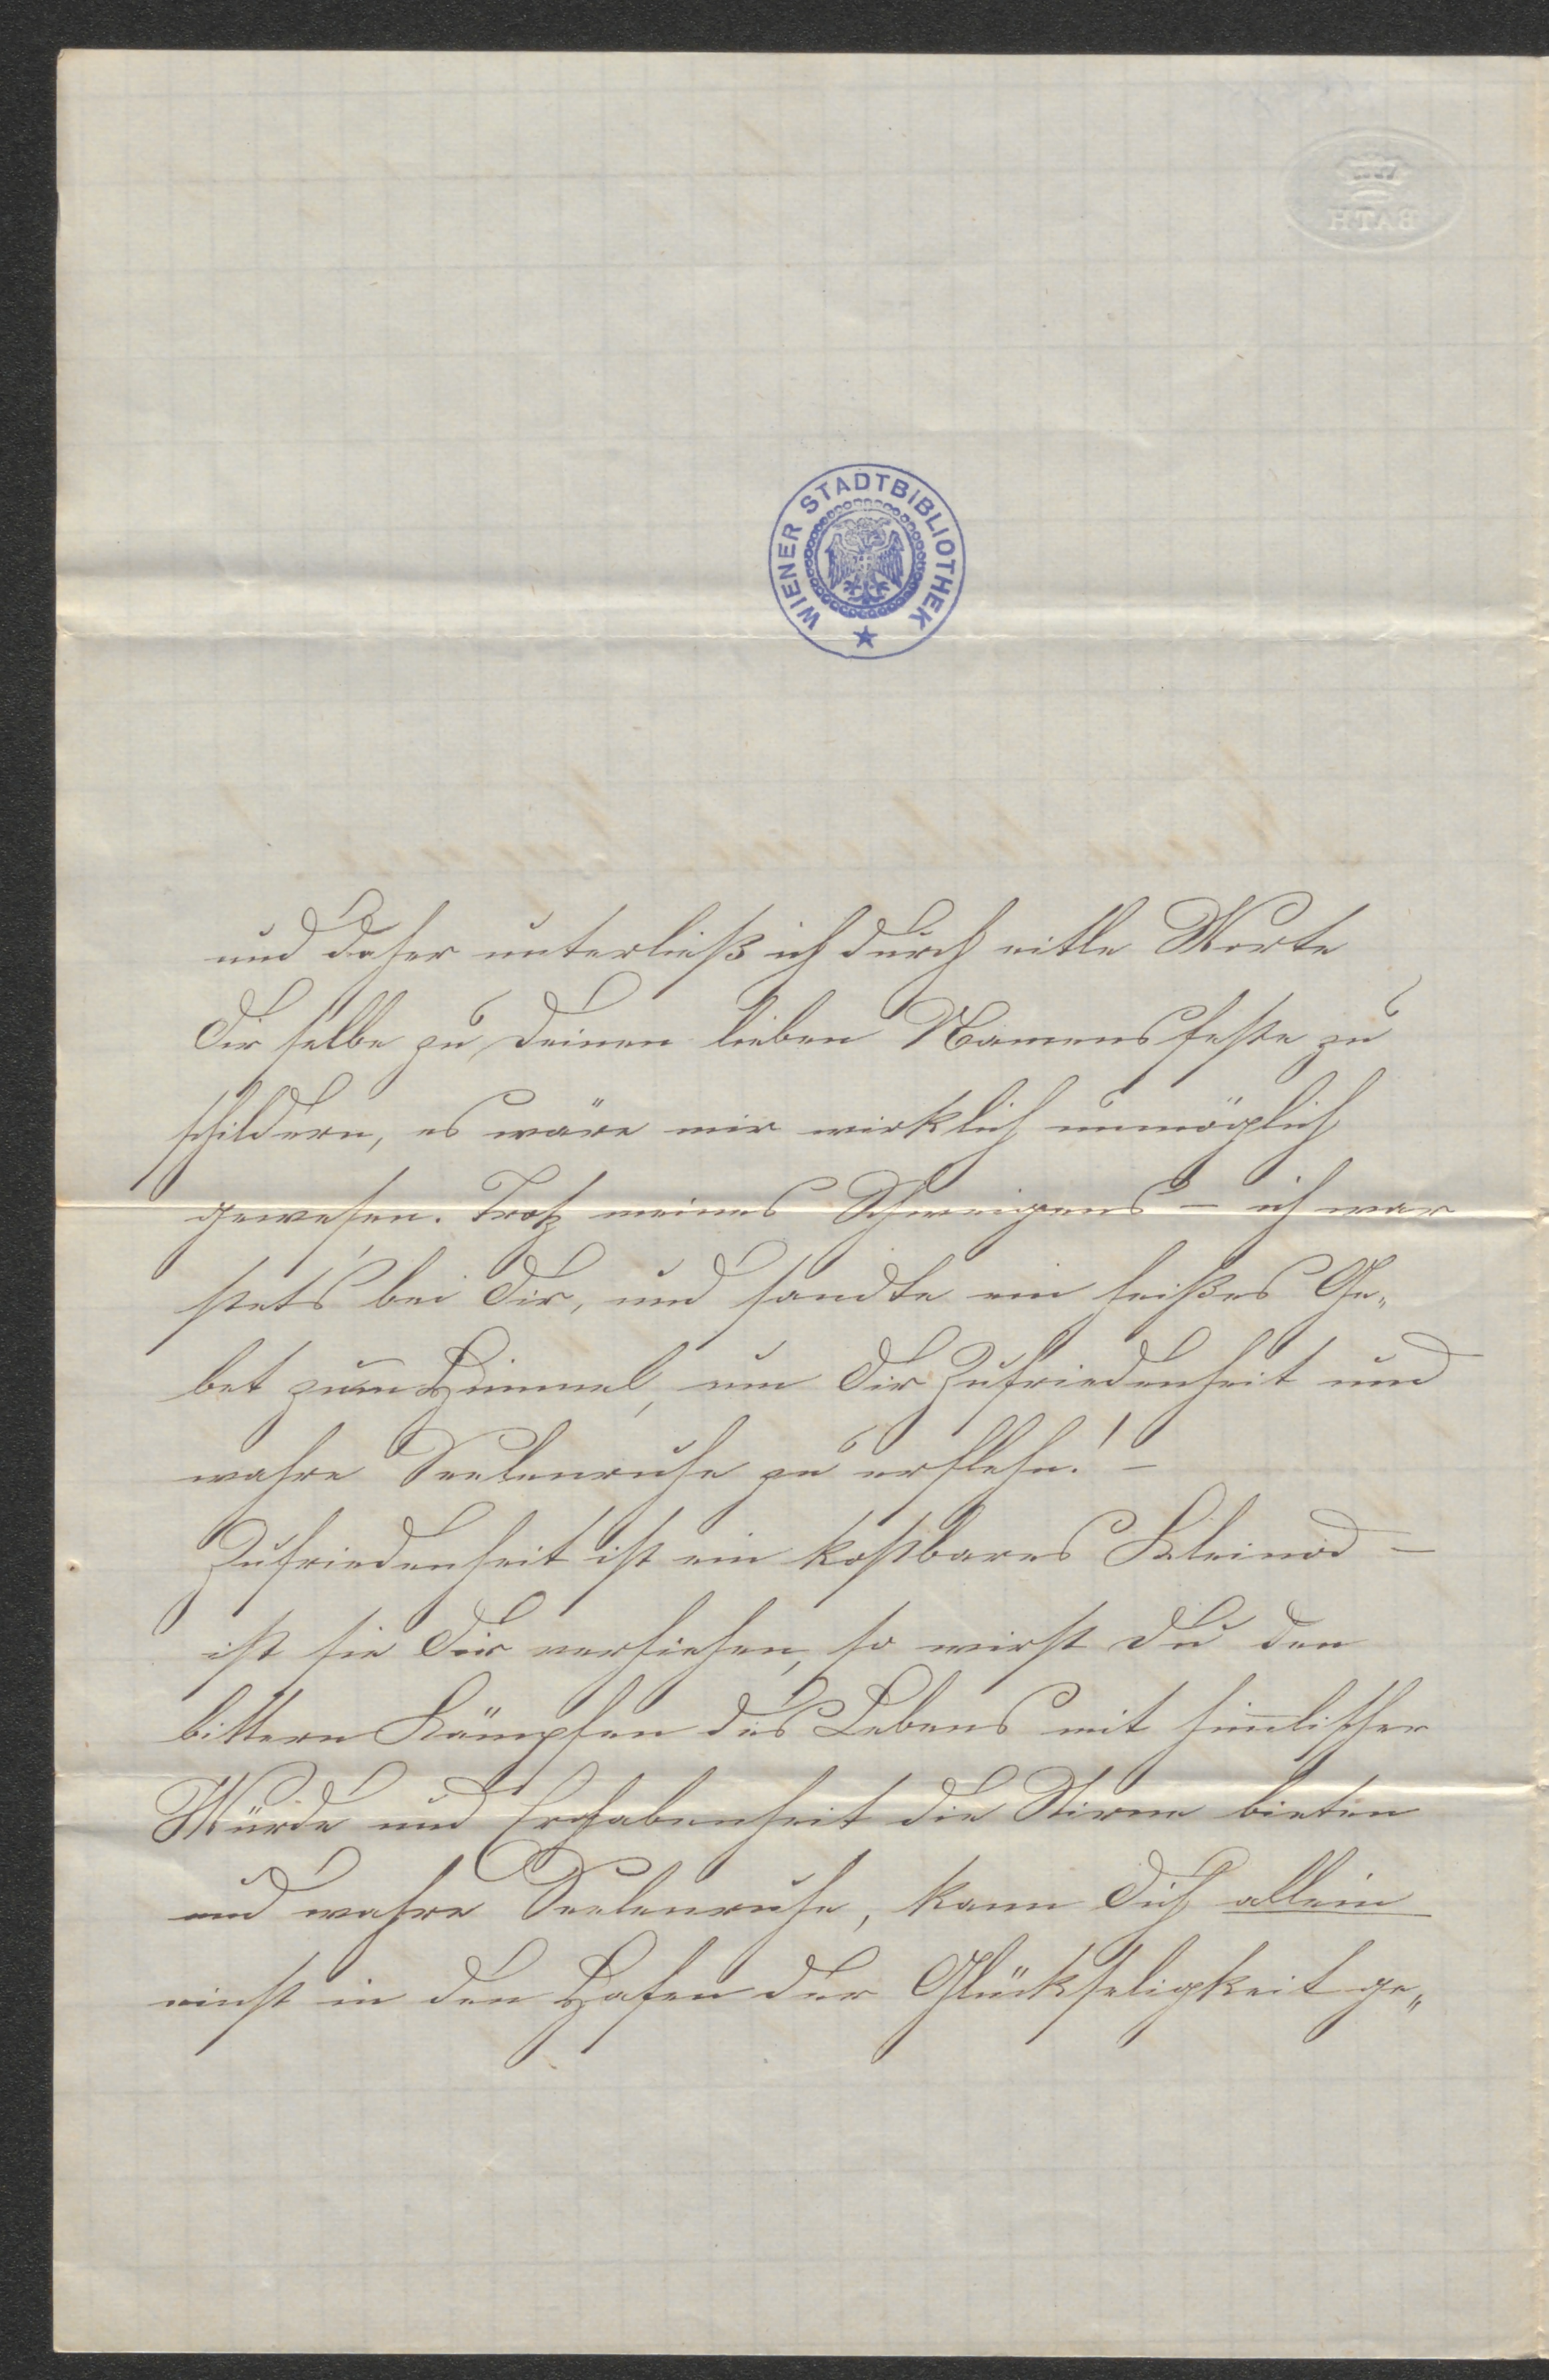 BATH
WIENER STADTBIBLIOTHEK
und daher unterließ ich durch eitle Worte
Dir selbe zu Deinen lieben Namensfeste zu
schildern, es wäre mir wirklich unmöglich
gewesen. Trotz meines Schweigens – ich war
stets bei Dir, und sandte ein heißes Ge„
bet zum Himmel, um Dir Zufriedenheit und
wahre Seelenruhe zu erflehn! –
Zufriedenheit ist ein kostbares Kleinod –
ist sie Dir verliehen, so wirst Du den
bittern Kämpfen des Lebens mit him̄lischer
Würde und Erhabenheit die Stirne bieten
und wahre Seelenruhe, kann Dich allein
einst in den Hafen der Glückseligkeit ge„